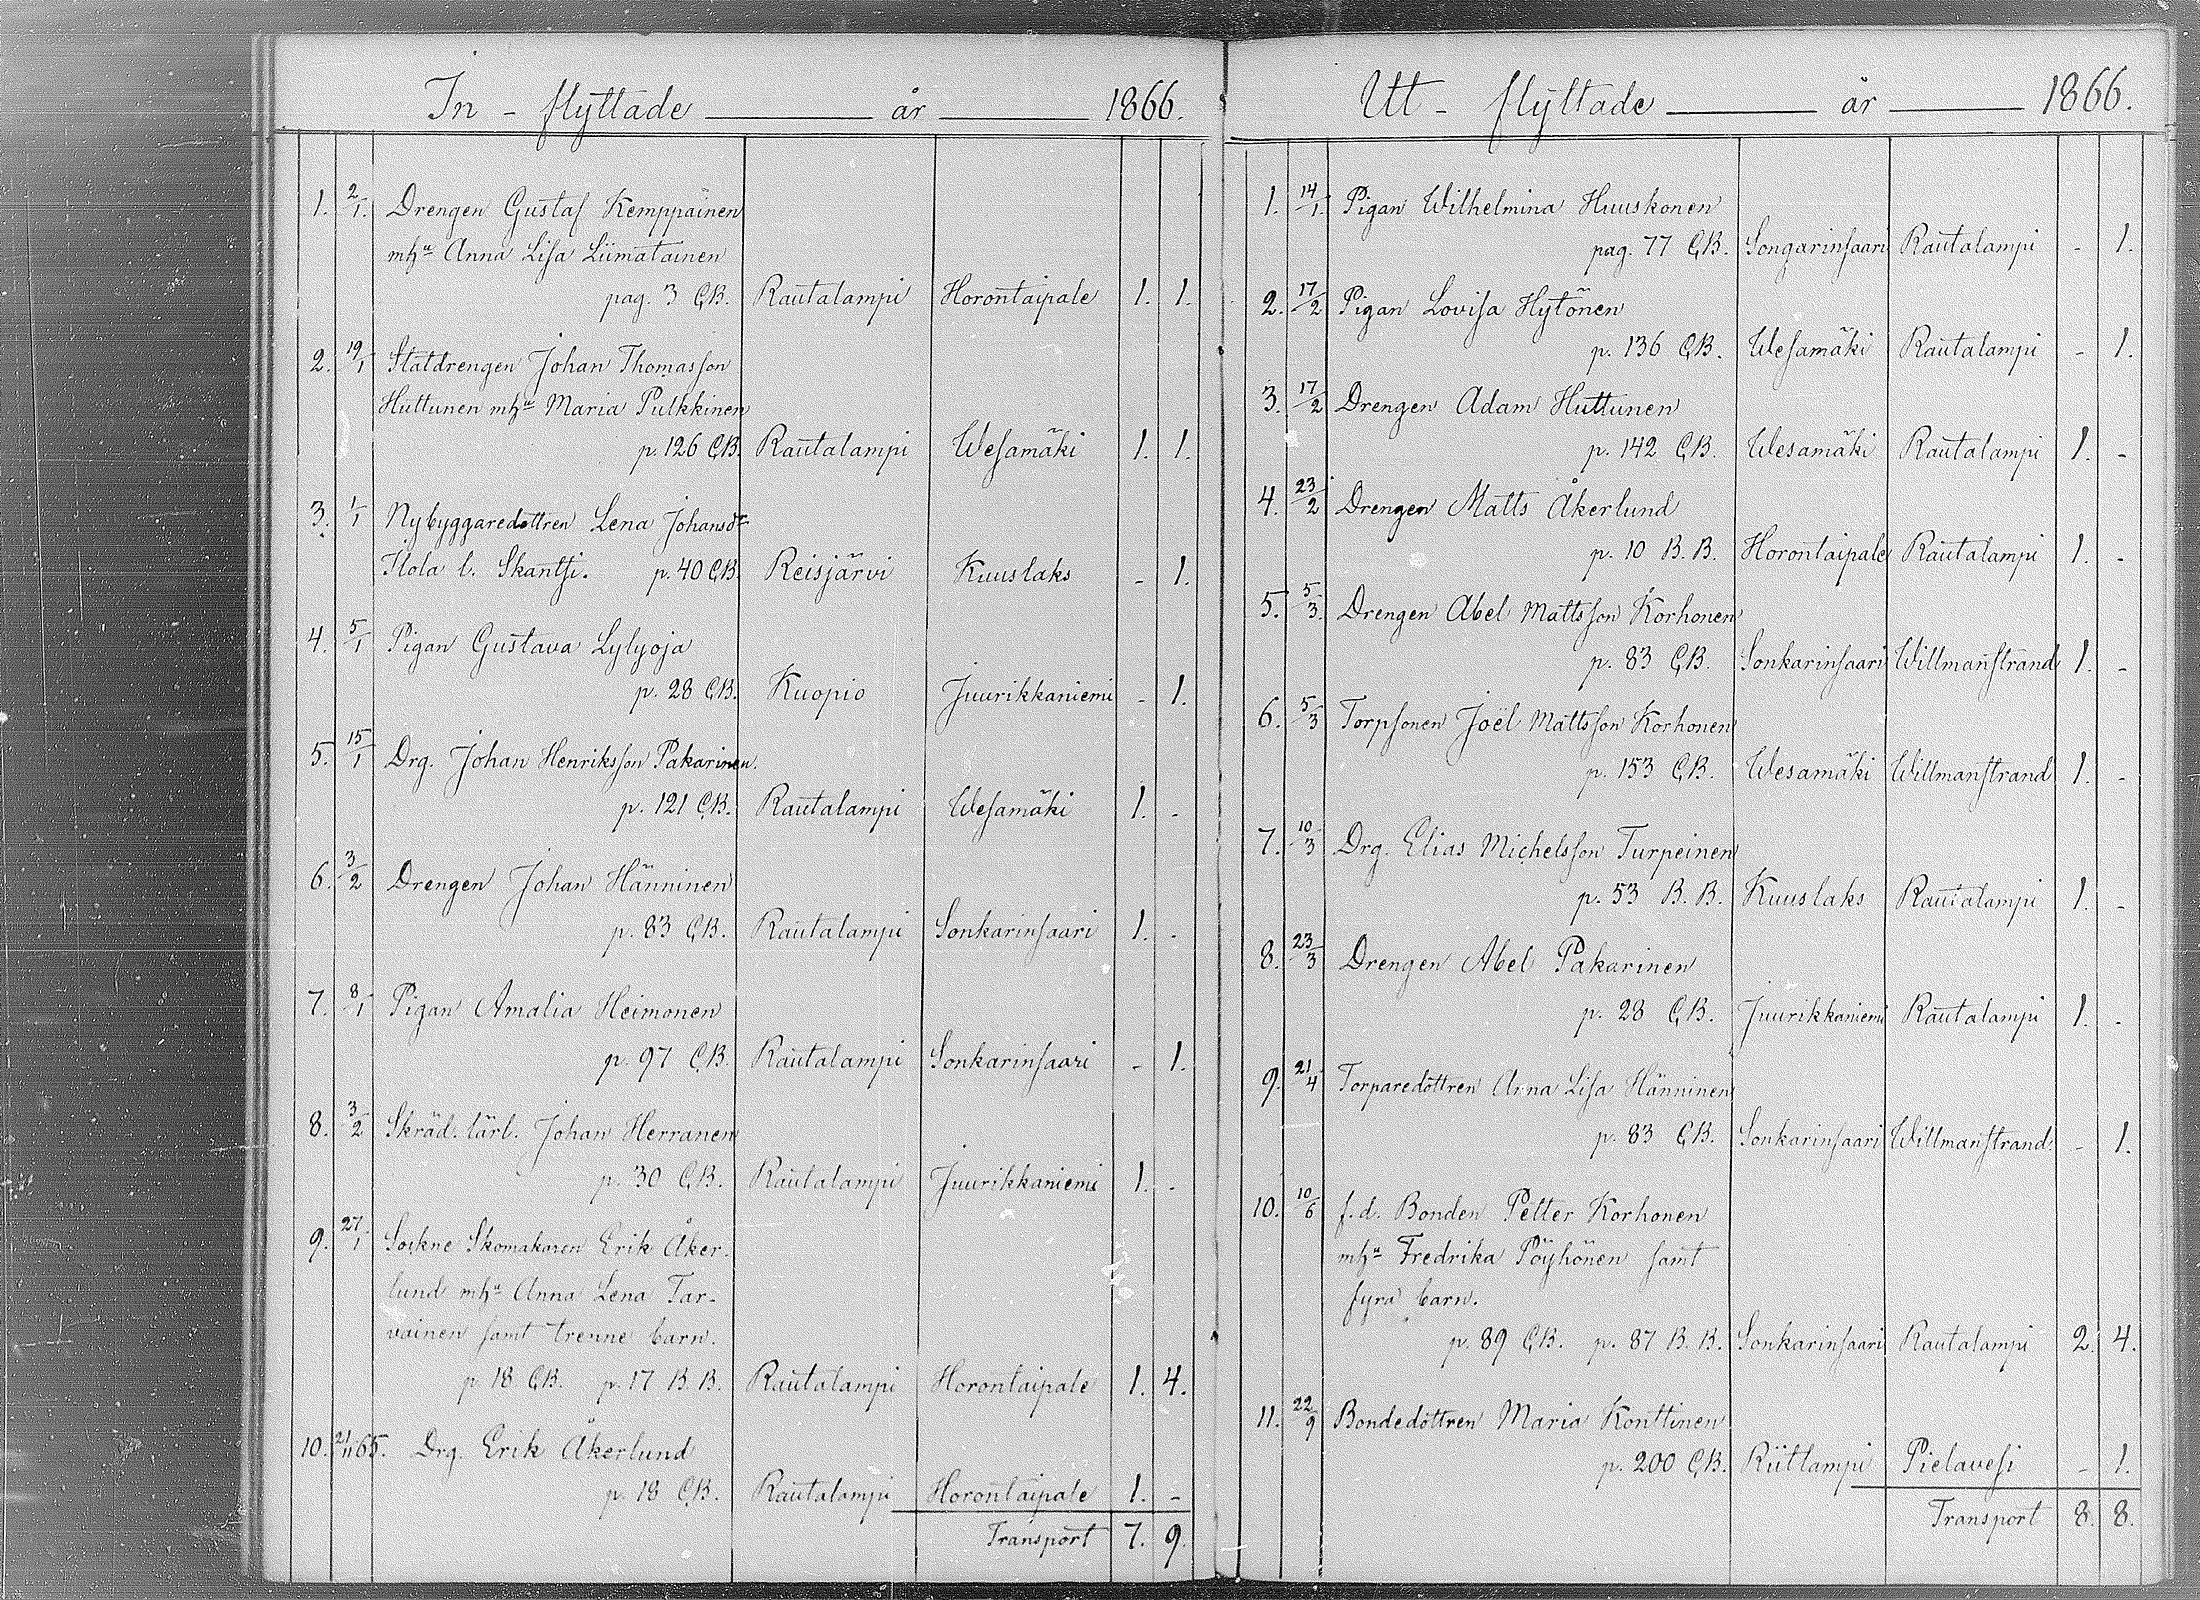 In - flyttade år 1866.
1. 2/1. Drengen Gustaf Kemppainen
mhu Anna Lisa Liimatainen
pag. 3 C,B. Rautalampi Horontaipale 1. 1.
2. 19/1 Statdrengen Johan Thomasson
Huttunen mhu Maria Pulkkinen
p. 126 C,B. Rautalampi Wesamäki 1. 1.
3. 1/1 Nybyggaredottren Lena Johansdr
Ilola l. Skantsi. p. 40 C,B. Reisjärvi Kuuslaks - 1.
4. 5/1 Pigan Gustava Lylyoja
p. 28 C,B. Kuopio Juurikkaniemi - 1.
5. 15/1 Drg. Johan Henriksson Pakarinen.
p. 121 C,B. Rautalampi Wesamäki 1. -
6. 3/2 Drengen Johan Hänninen
p. 83 C,B. Rautalampi Sonkarinsaari 1. -
7. 8/1 Pigan Amalia Heimonen
p. 97 C,B. Rautalampi Sonkarinsaari - 1.
8. 3/2 Skräd. lärl. Johan Herranen
p. 30 C,B. Rautalampi Juurikkaniemi 1. -
9. 27/1 Sockne Skomakaren Erik Åker-
lund mhu Anna Lena Tar-
vainen samt trenne barn.
p. 18 C,B. p. 17 B.B. Rautalampi Horontaipale 1. 4.
10. 21/11 65. Drg. Erik Åkerlund
p. 18 C,B. Rautalampi Horontaipale 1. -
Transport 7. 9.
Utt - flyttade år 1866.
1. 14/1. Pigan Wilhelmina Huuskonen
pag. 77 C,B. Songarinsaari Rautalampi - 1.
2. 17/2 Pigan Lovisa Hytönen
p. 136 C,B. Wesamäki Rautalampi - 1.
3. 17/2 Drengen Adam Huttunen
p. 142 C,B. Wesamäki Rautalampi 1. -
4. 23/2 Drengen Matts Åkerlund
p. 10 B.B. Horontaipale Rautalampi 1. -
5. 5/3. Drengen Abel Mattsson Korhonen
p. 83 C,B. Sonkarinsaari Willmanstrand 1. -
6. 5/3 Torpsonen Joël Mattsson Korhonen
p. 153 C,B. Wesamäki Willmanstrand 1. -
7. 10/3 Drg. Elias Michelsson Turpeinen
p. 53 B.B. Kuuslaks Rautalampi 1. -
8. 23/3 Drengen Abel Pakarinen
p. 28 C,B. Juurikkaniemi Rautalampi 1. -
9. 21/4 Torparedottren Anna Lisa Hänninen
p. 83 C,B. Sonkarinsaari Willmanstrand. - 1.
10. 10/6 f.d. Bonden Petter Korhonen
mhu Fredrika Pöyhönen samt
fyra barn.
p. 89 C,B. p. 87 B.B. Sonkarinsaari Rautalampi 2. 4.
11. 22/9 Bondedottren Maria Konttinen
p. 200 C,B. Riitlampi Pielavesi - 1.
Transport 8. 8.